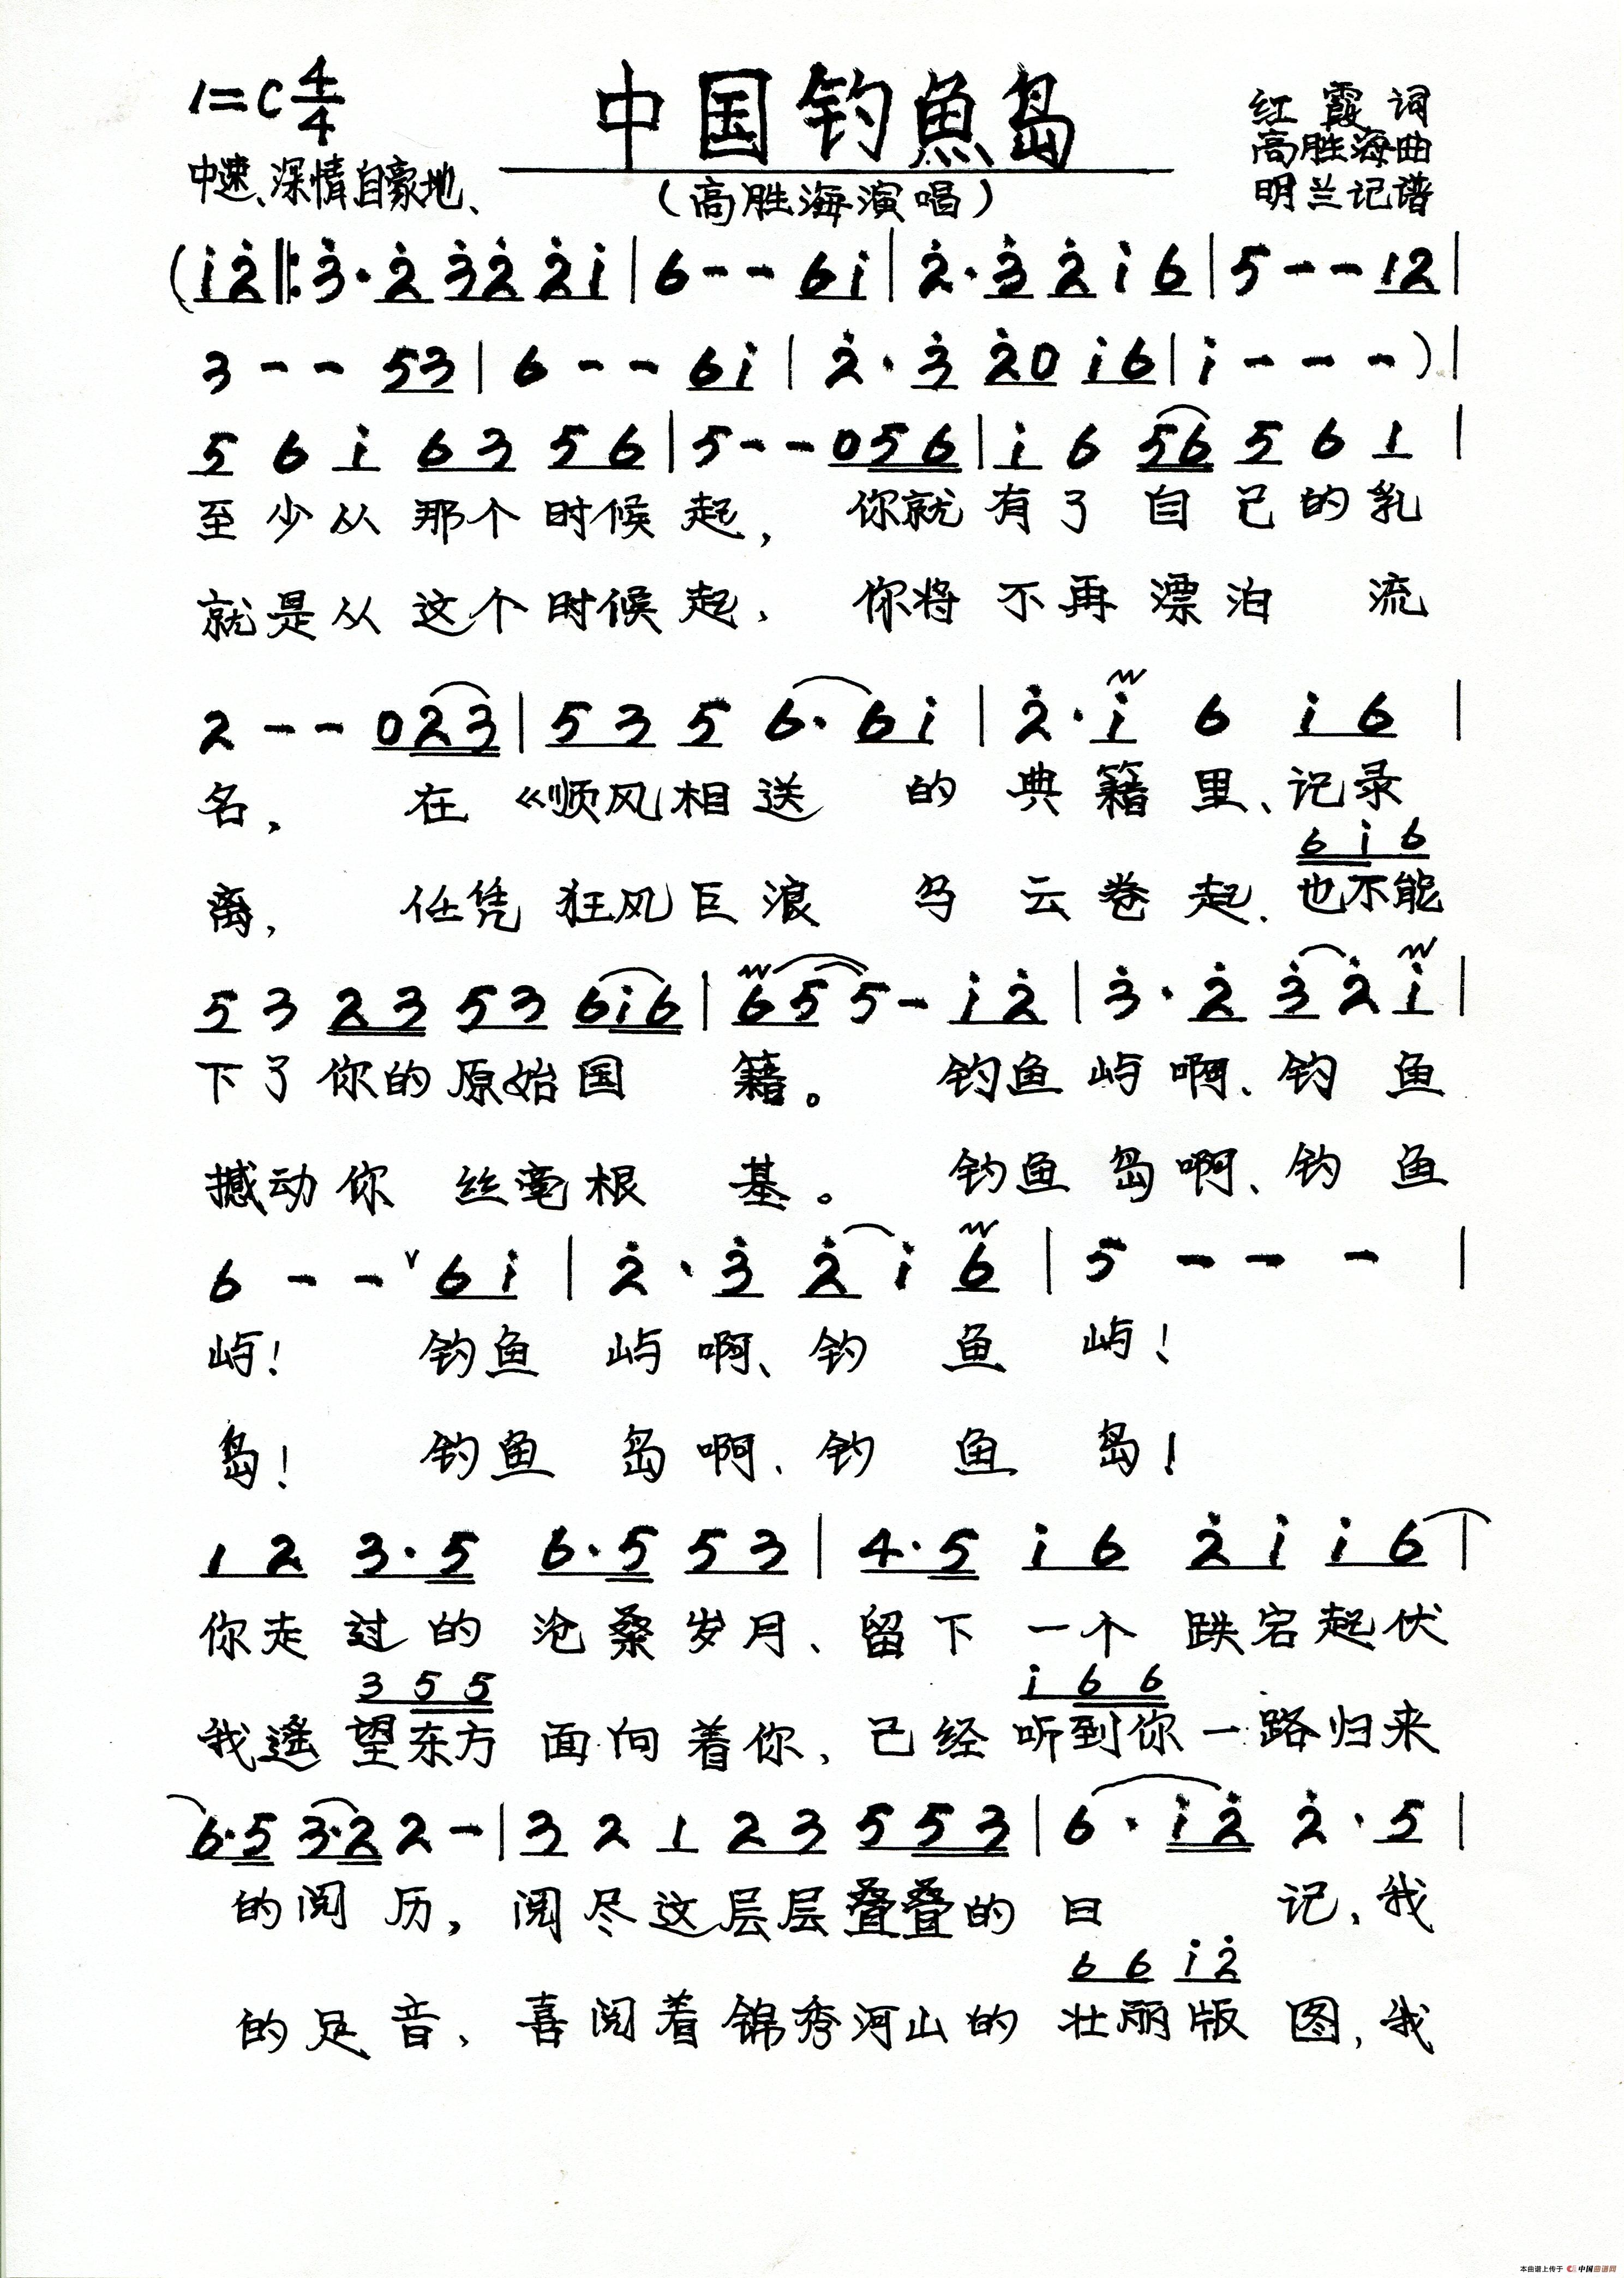 1=C 4/4
中国钓魚岛
红霞词
高胜海曲
明兰记谱
中速、深情自豪地、
（高胜海演唱）
(i 2̇ ‖: 3̇· 2̇ 3̇2̇ 2̇i | 6 - - 6i | 2̇· 3̇ 2̇ i 6 | 5 - - 12 |
3 - - 53 | 6 - - 6i | 2̇· 3̇ 2̇0 i6 | i - - - ) |
5 6 i 63 56 | 5 - - 056 | i 6 56 5 6 1 |
至少从那个时候起，你就有了自己的乳
就是从这个时候起，你将不再漂泊流
2 - - 023 | 53 5 6· 6i | 2̇· i 6 i6 |
名，在《顺风相送的典籍里、记录
6 i 6
离，任凭狂风巨浪乌云卷起、也不能
5 3 23 53 6i6 | 65 5 - i2̇ | 3̇· 2̇ 3̇ 2̇ i |
下了你的原始国籍。钓鱼屿啊、钓鱼
撼动你丝毫根基。钓鱼岛啊、钓鱼
6 - - ˅ 6i | 2̇· 3̇ 2̇ i 6 | 5 - - - |
屿！钓鱼屿啊、钓鱼屿！
岛！钓鱼岛啊、钓鱼岛！
12 3·5 6·5 53 | 4·5 i6 2̇i i6 |
你走过的沧桑岁月、留下一个跌宕起伏
3 5 5 i 6 6
我遥望东方面向着你、已经听到你一路归来
6·5 3·2 2 - | 3 2 1 23 553 | 6· i2̇ 2̇· 5 |
的阅历，阅尽这层层叠叠的日记、我
6 6 i 2̇
的足音、喜阅着锦秀河山的壮丽版图，我
本曲谱上传于 中国曲谱网